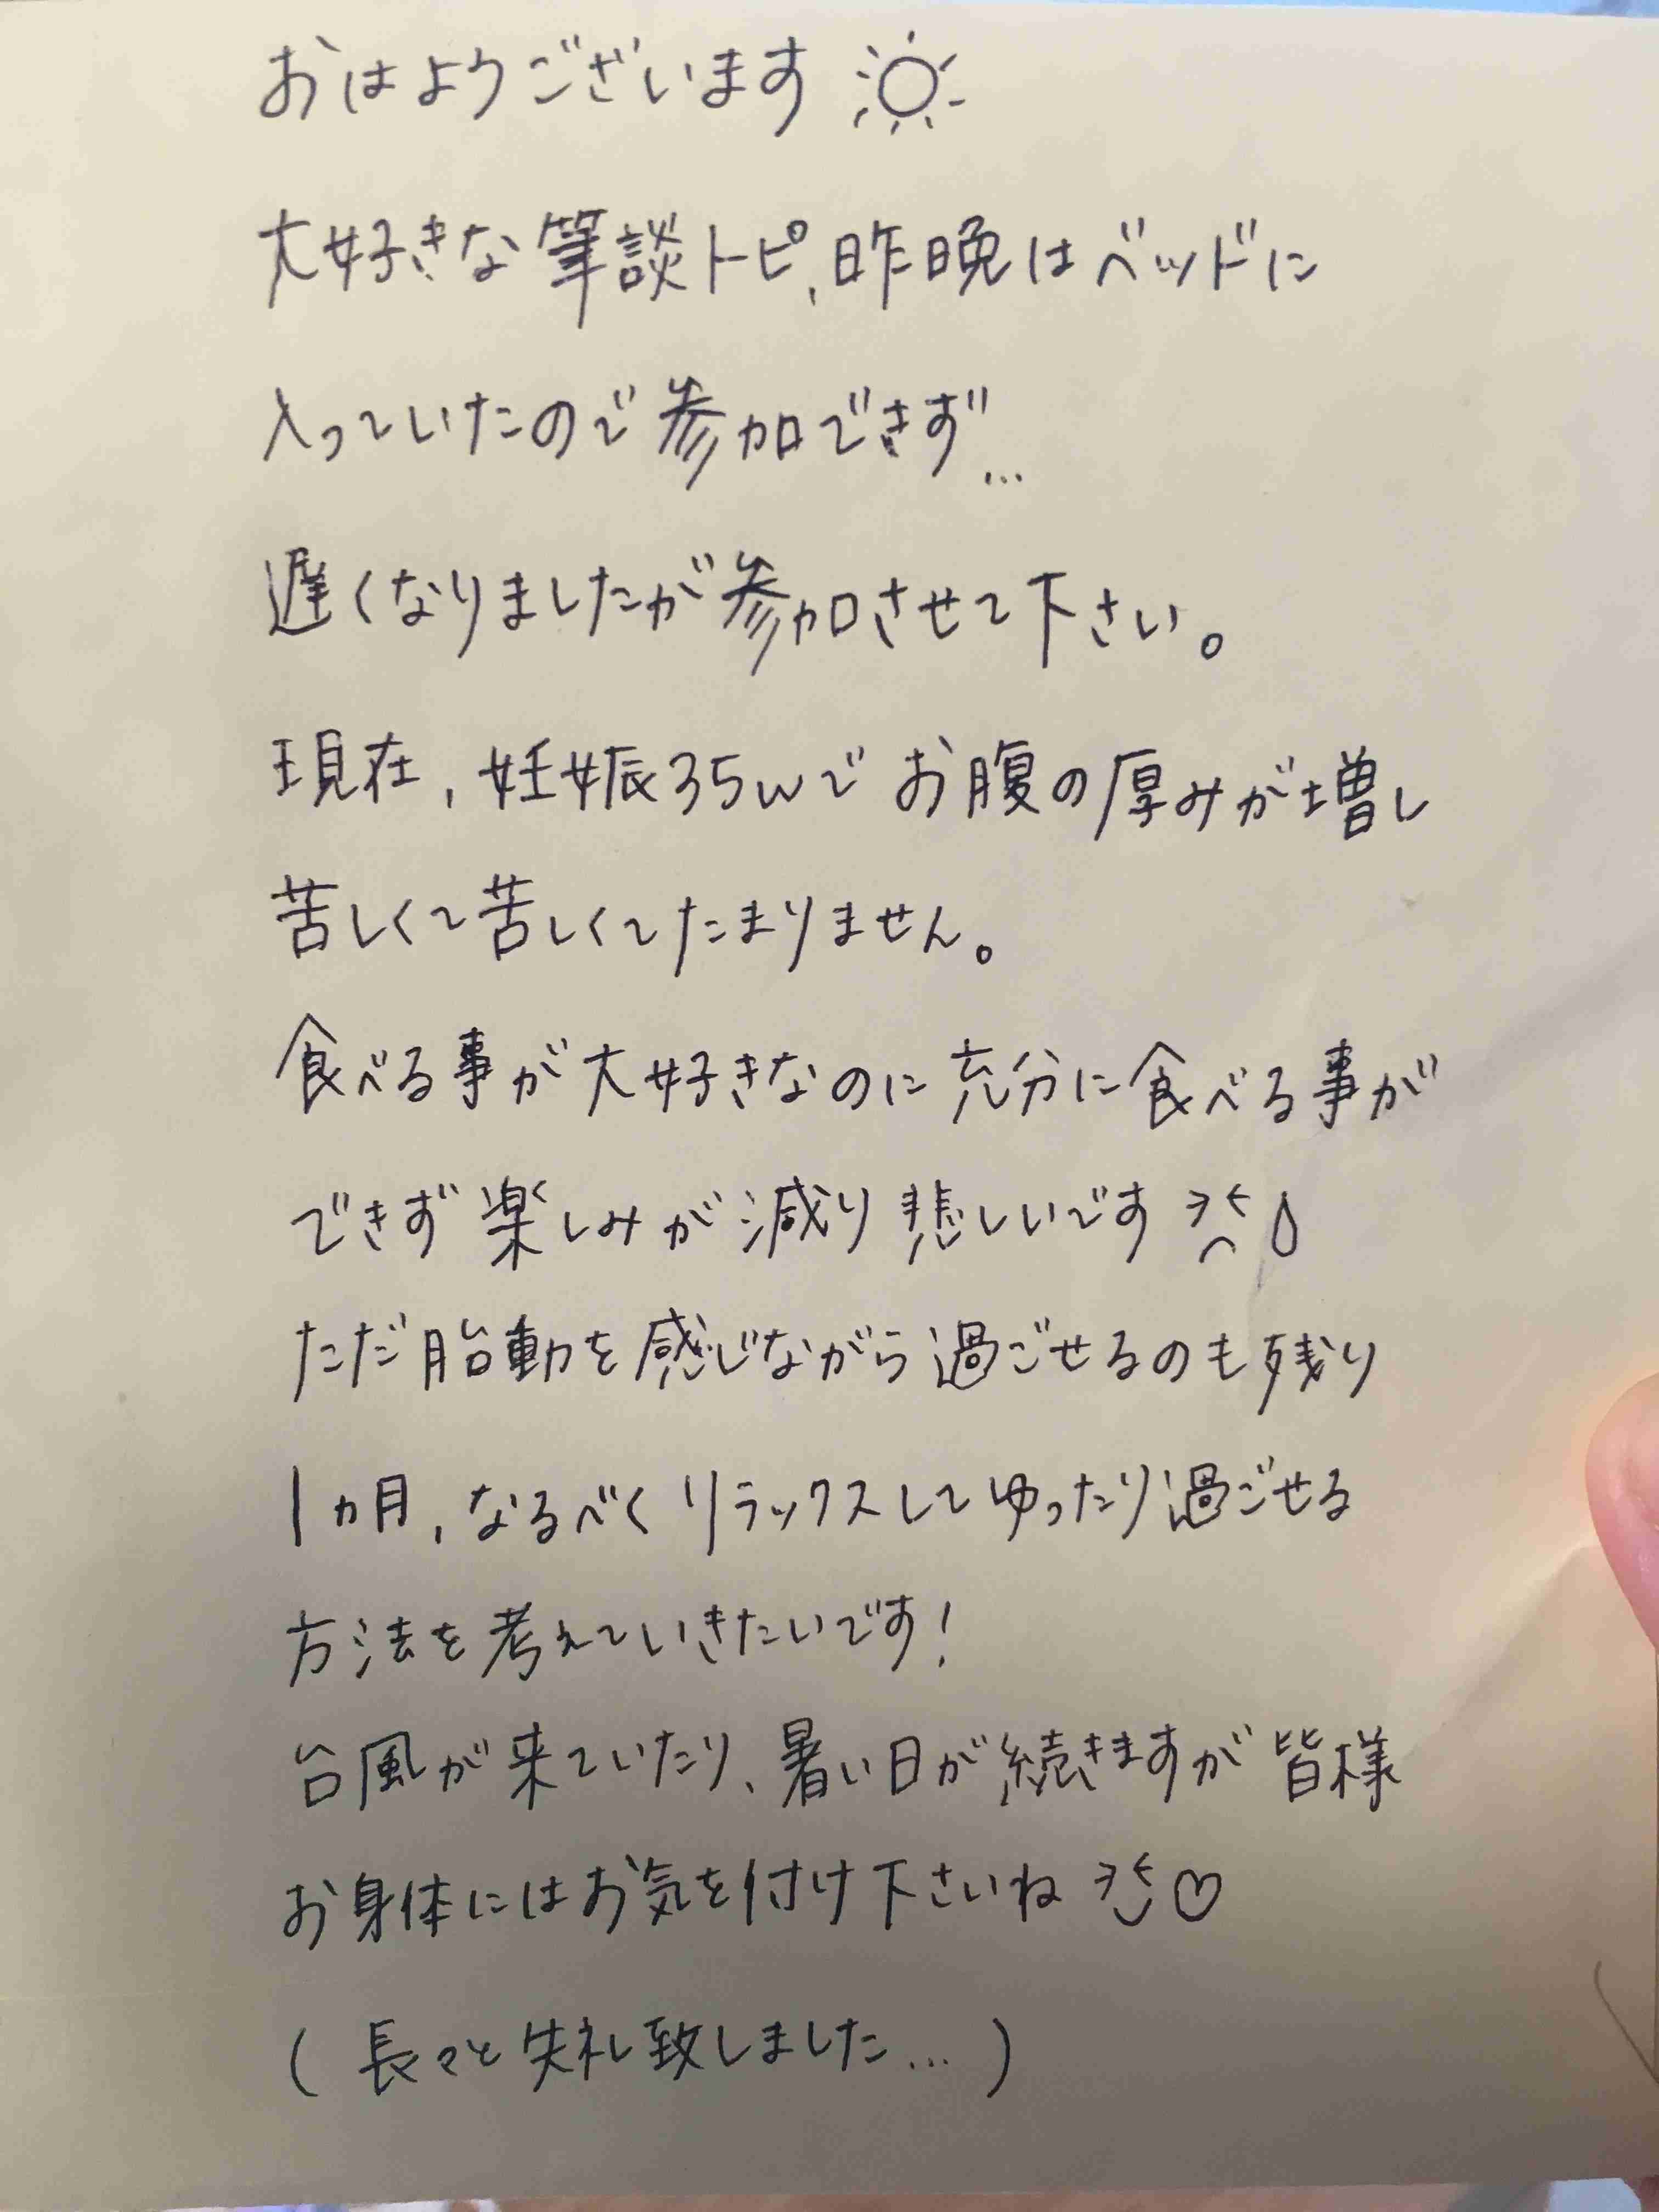 おはようございます
大好きな筆談トピ、昨晩はベッドに
入っていたので参加できず…
遅くなりましたが参加させて下さい。
現在、妊娠35wでお腹の厚みが増し
苦しくて苦しくてたまりません。
食べる事が大好きなのに充分に食べる事が
できず楽しみが減り悲しいです
ただ胎動を感じながら過ごせるのも残り
1ヵ月、なるべくリラックスしてゆったり過ごせる
方法を考えていきたいです!
台風が来ていたり、暑い日が続きますが皆様
お身体にはお気を付け下さいね♡
(長々と失礼致しました…)